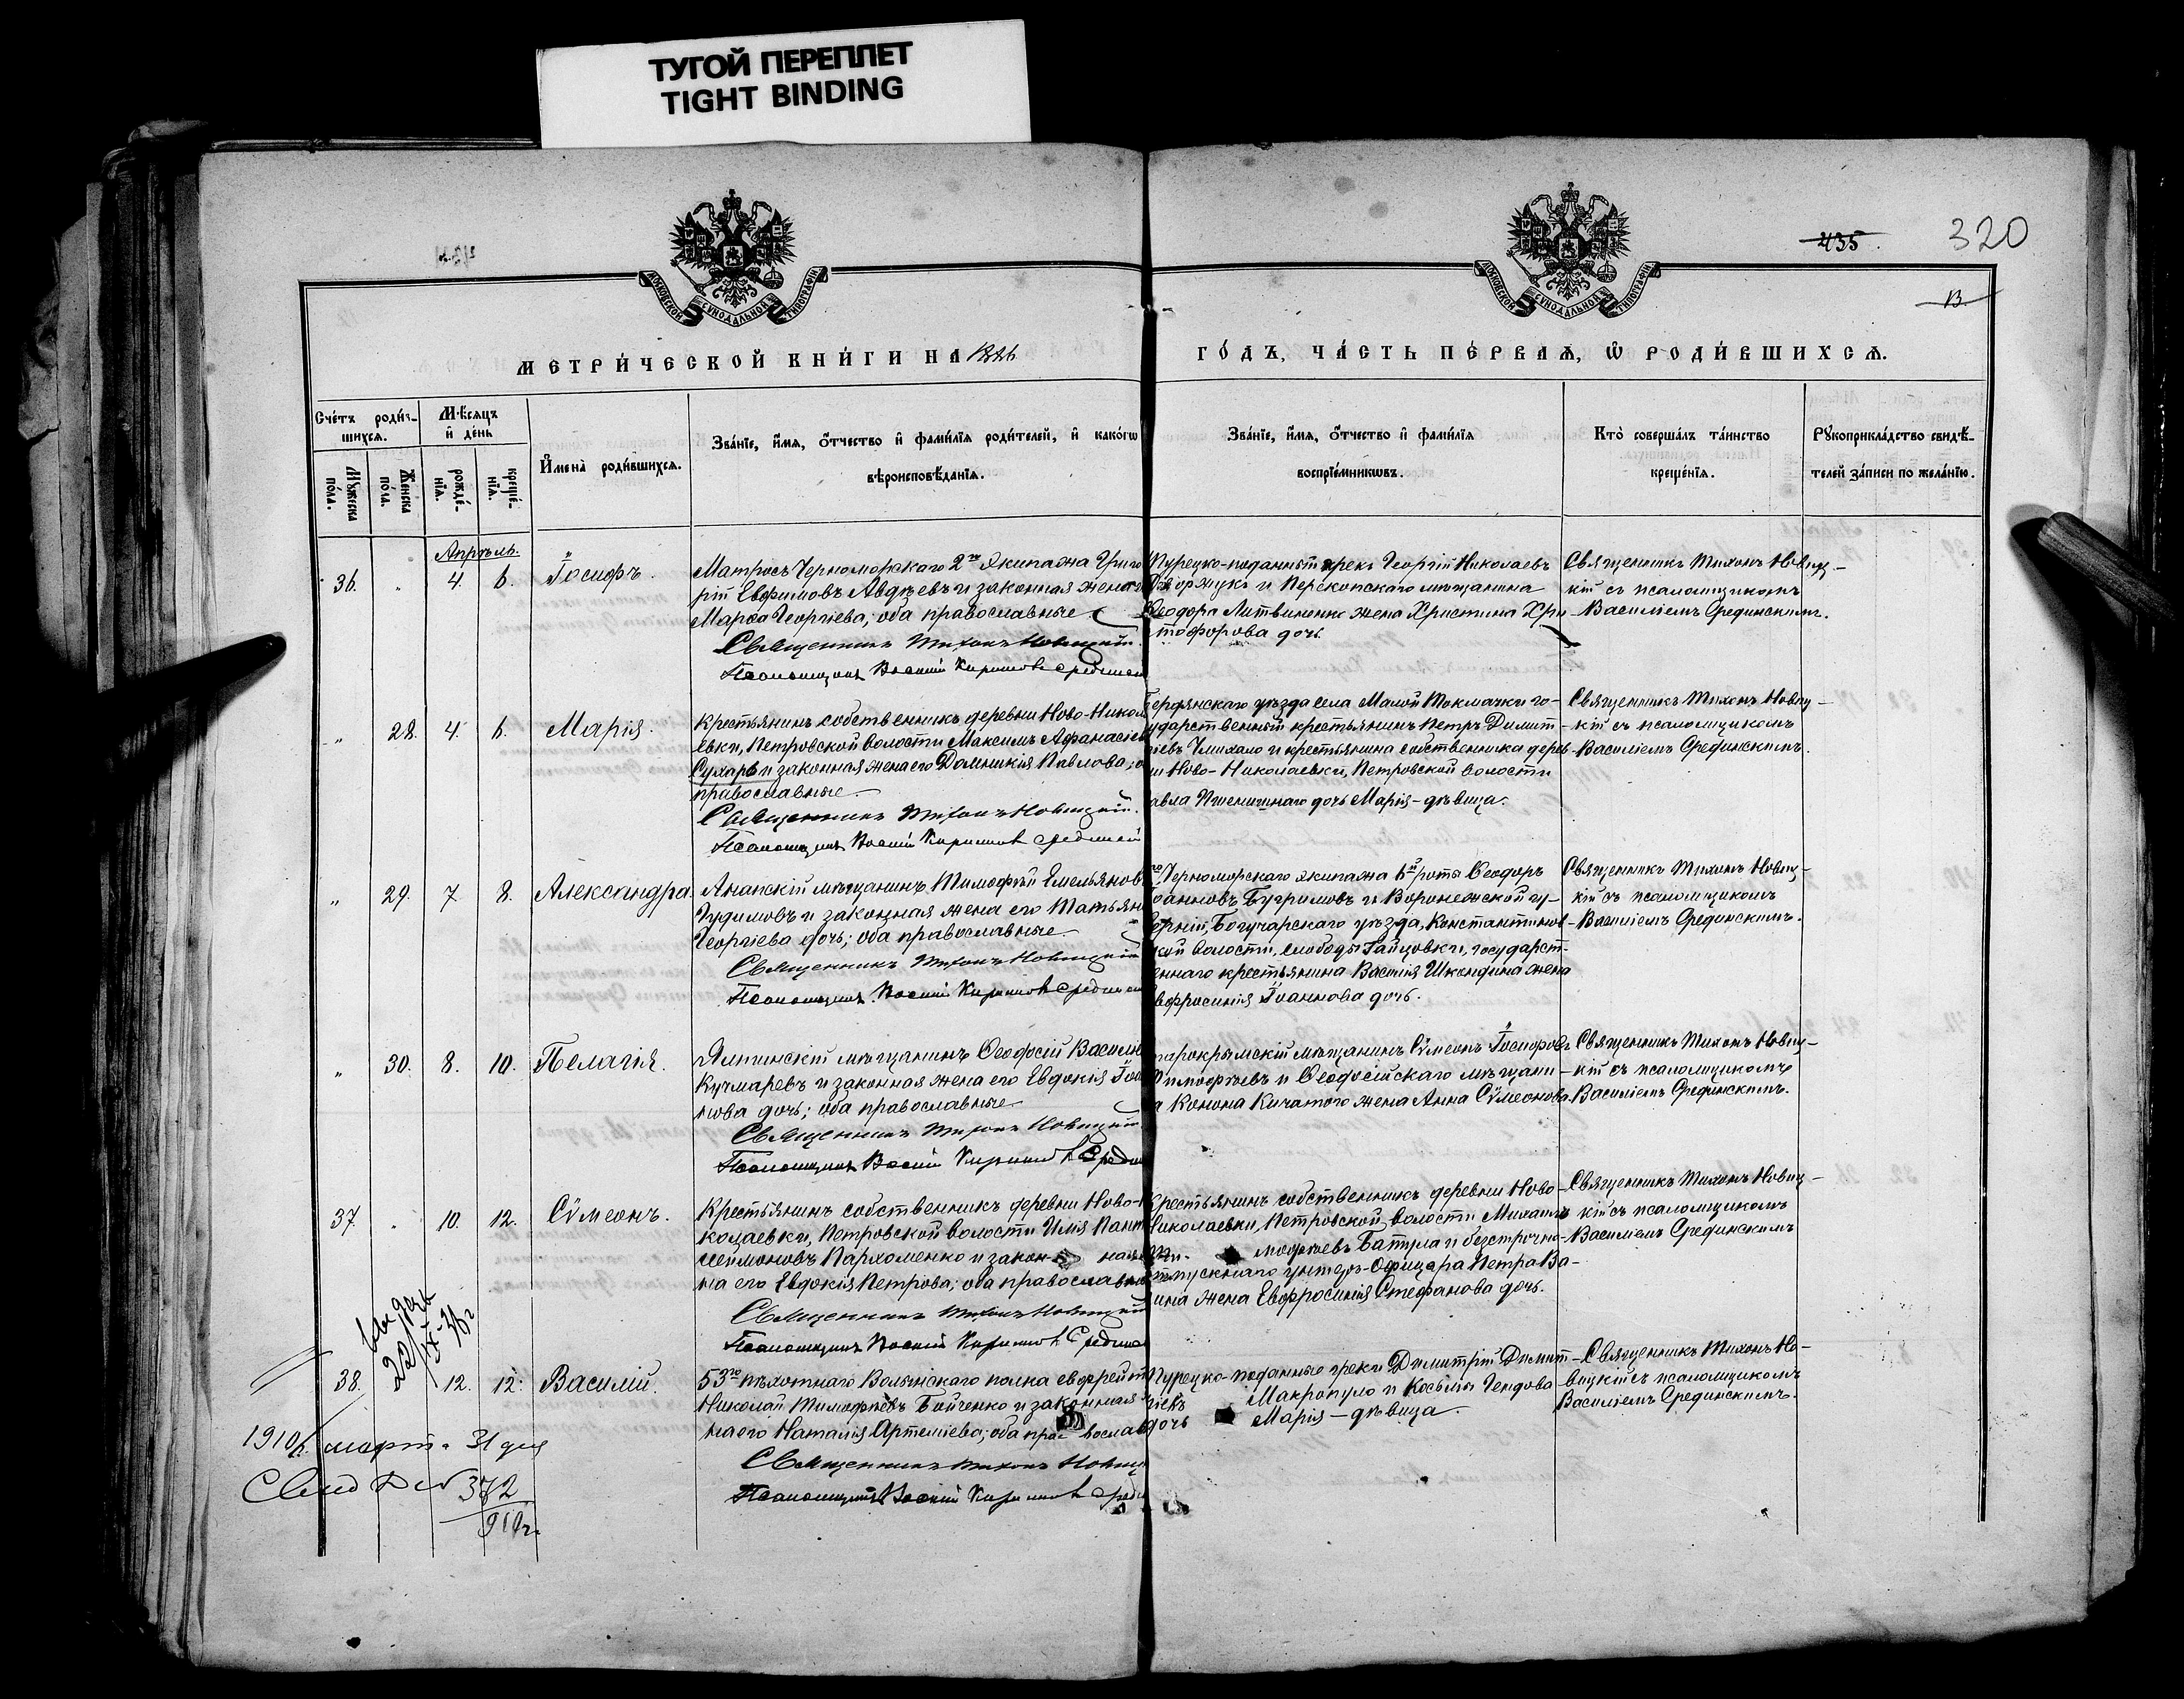 ТУГОЙ ПЕРЕПЛЕТ
TIGHT BINDING
435
320
13
МОСКОВСКОЙ СѴНОДАЛЬНОЙ ТИПОГРАФІИ
МОСКОВСКОЙ СѴНОДАЛЬНОЙ ТИПОГРАФІИ
МЕТРИ́ЧЕСКОЙ КНИ́ГИ НА 1886
ГО́ДЪ, ЧА́СТЬ ПЕ́РВАѦ, Ѽ РОДИ́ВШИХСѦ.
Сче́тъ роди́в-
шихсѧ.
Мꙋ́жеска по́ла.
Же́нска по́ла.
Мѣ́сѧцъ
и҆ де́нь
рожде́-
нїѧ.
креще́-
нїѧ.
И҆мена̀ роди́вшихсѧ.
Зва́нїе, и҆́мѧ, ѻ҆́тчество и҆ фами́лїѧ роди́телей, и҆ како́гѡ
вѣроисповѣ́данїѧ.
Зва́нїе, и҆́мѧ, ѻ҆́тчество и҆ фами́лїѧ
воспрїе́мникѡвъ.
Кто̀ соверша́лъ та́инство
креще́нїѧ.
Рꙋкоприкла́дство свидѣ́-
телей за́писи по жела́нїю.
Апрѣль.
36. „ 4 6. Іосифъ.
Матросъ Черноморскаго 2го Экипажа Григо
рій Евфимовъ Авдѣевъ и законная жена его
Марѳа Георгіева; оба православные
Священникъ Тихонъ Новицкій.
Псаломщикъ Василій Кириловъ Средин
Турецко-поданный грекъ Георгій Николаевъ
и Перекопскаго мѣщанина
Ѳеодора Литвиненко жена Христина Хри
стофорова дочь.
Священникъ Тихонъ Новиц-
кій съ псаломщикомъ
Василіемъ Срединскимъ.
„ 28. 4. 6. Марія.
Крестьянинъ собственникъ деревни Ново-Никол
евки, Петровской волости Максимъ Афанасіев
Сухарь и законная жена его Домникія Павлова; о
православные
Священникъ Тихонъ Новицкій.
Псаломщикъ Василій Кириловъ Средин
Бердянскаго уѣзда села Малой Токмачки го-
ударственный крестьянинъ Петръ Димит-
ріевъ Чмихало и крестьянина собственника дерев
ни Ново-Николаевки, Петровской волости
авла Пшеничнаго дочь Марія-дѣвица.
Священникъ Тихонъ Новиц-
кій съ псаломщикомъ
Василіемъ Срединскимъ.
„ 29. 7. 8. Александра.
Анапскій мѣщанинъ Тимофѣй Емельянов
Чудимовъ и законная жена его Татьян
Георгіева дочь; оба православные
Священникъ Тихонъ Новицкій
Псаломщикъ Василій Кириловъ Средин
го Черноморскаго экипажа 6й роты Ѳеодоръ
оанновъ Бугримовъ и Воронежской гу-
ерніи, Богучарскаго уѣзда, Константинов-
кой волости, слободы Гайцовки, государст-
еннаго крестьянина Василія Шкондина жена
вфросинія Іоаннова дочь.
Священникъ Тихонъ Новиц-
кій съ псаломщикомъ
Василіемъ Срединскимъ.
„ 30. 8. 10. Пелагія.
Ялтинскій мѣщанинъ Ѳеодосій Василь
Кучмаревъ и законная жена его Евдокія Іоа
нова дочь; оба православные
Священникъ Тихонъ Новицкій.
Псаломщикъ Василій Кириловъ Средин
тарокрымскій мѣщанинъ Сѵмеонъ Іосифовъ
Тимофѣевъ и Ѳеодосійскаго мѣщани-
а Конона Кичатого жена Анна Сѵмеонова.
Священникъ Тихонъ Новиц-
кій съ псаломщикомъ
Василіемъ Срединскимъ.
37. „ 10. 12. Сѵмеонъ.
Крестьянинъ собственникъ деревни Ново-
колаевки, Петровской волости Илія Пант
леймоновъ Пархоменко и закон ная
на его Евдокія Петрова; оба православн
Священникъ Тихонъ Новицкій
Псаломщикъ Василій Кириловъ Средин
Крестьянинъ собственникъ деревни Ново-
Николаевки, Петровской волости Михаилъ
Ти- мофѣевъ Батула и безсрочно-
тпускнаго унтеръ-офицера Петра Ва-
ина жена Евфросинія Стефанова дочь.
Священникъ Тихонъ Новиц-
кій съ псаломщикомъ
Василіемъ Срединскимъ
22/IX-36г
38. 12. 12. Василій.
53го пѣхотнаго Волынскаго полка ефрейт
Николай Тимофѣевъ Бойченко и законная
на его Наталія Артеміева; оба пра- вослав
Священникъ Тихонъ Новиц
Псаломщикъ Василій Кириловъ Среди
Турецко-поданные греки Димитрій Димит-
ріевъ Макропуло и Косьмы Чендова
дочь Марія-дѣвица.
Священникъ Тихонъ Но-
вицкій съ псаломщикомъ
Василіемъ Срединскимъ.
1910г. март. 31 дня
Свид № 372
910г.